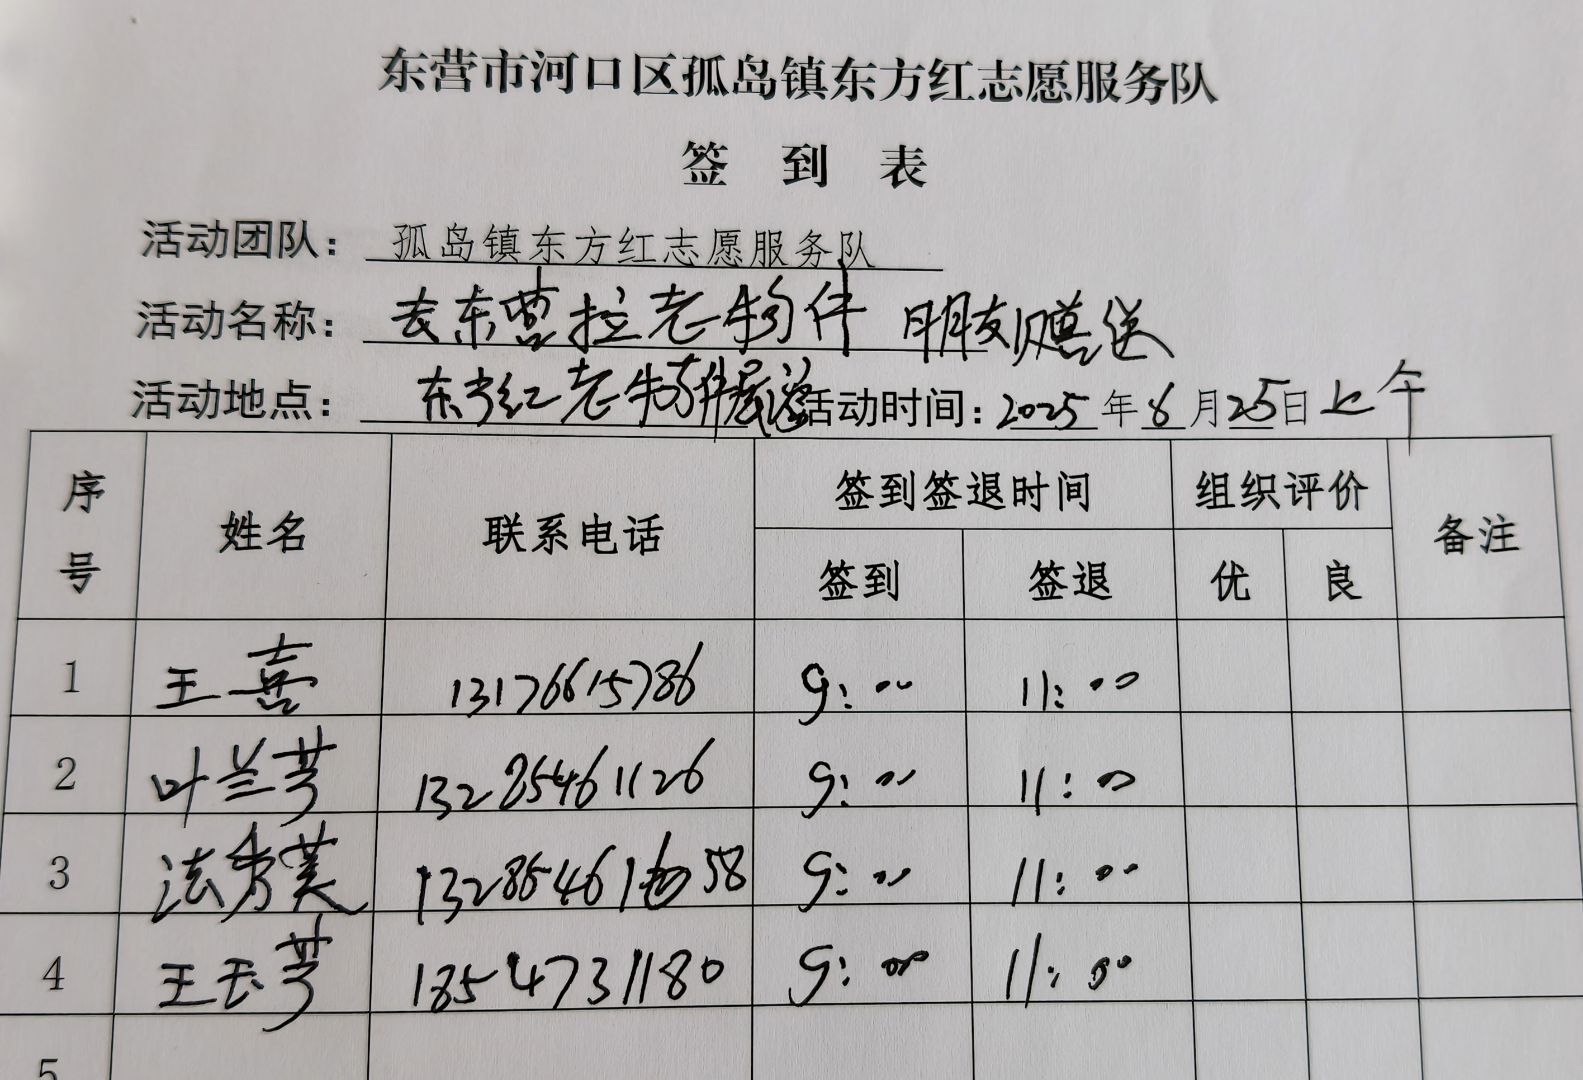 东营市河口区孤岛镇东方红志愿服务队
签 到 表
活动团队：孤岛镇东方红志愿服务队
活动名称：去东营拉老物件 朋友赠送
活动地点：东方红老物件展览 活动时间：2025年6月25日上午
序号 姓名 联系电话 签到签退时间 组织评价 备注
签到 签退 优 良
1 王喜 13176615786 9:00 11:00
2 叶兰芳 13285461126 9:00 11:00
3 法秀芙 9:00 11:00
4 王玉芳 18547311180 9:00 11:00
5